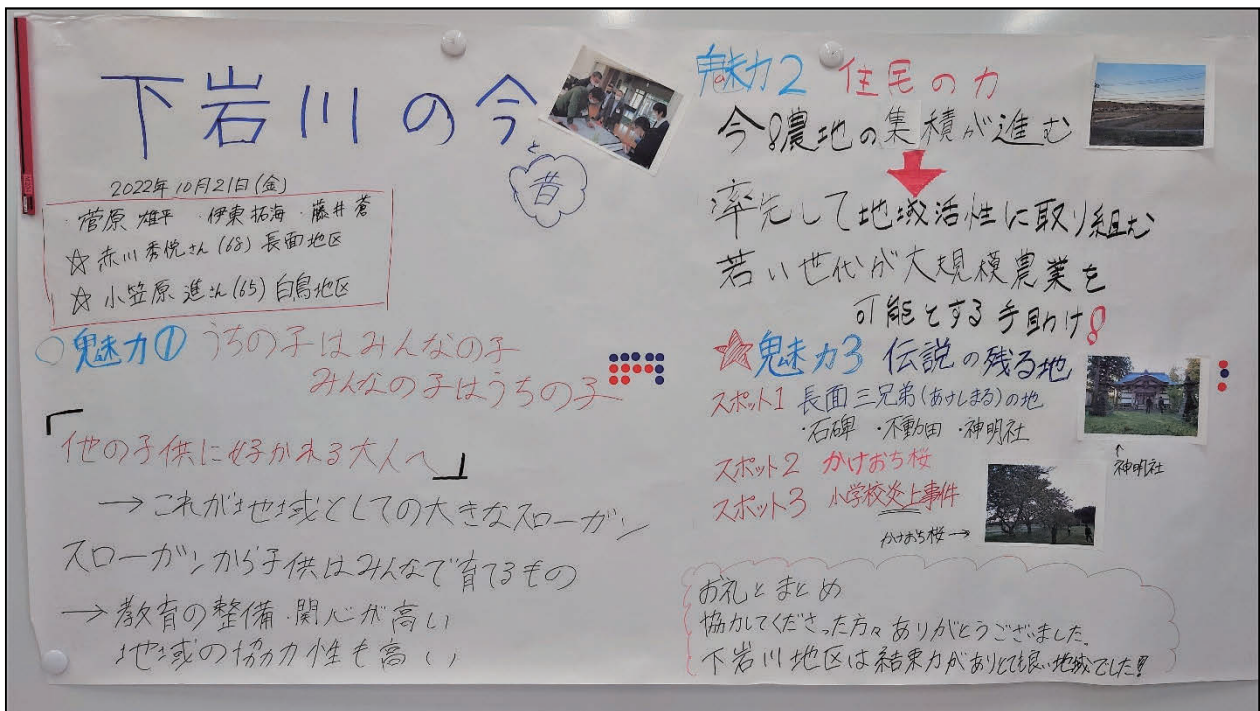 下岩川の今
と
昔
2022年10月21日(金)
・菅原 雄平 ・伊東 拓海 ・藤井 蒼
☆ 赤川 秀悦さん (68) 長面地区
☆ 小笠原 進さん (65) 白鳥地区
○魅力① うちの子はみんなの子
みんなの子はうちの子
「他の子供に好かれる大人へ」
→これが地域としての大きなスローガン
スローガンから子供はみんなで育てるもの
→教育の整備・関心が高い
地域の協力性も高い
魅力2 住民の力
今!農地の集積が進む
率先して地域活性に取り組む
若い世代が大規模農業を
可能とする手助け!
☆魅力3 伝説の残る地
スポット1 長面三兄弟(あけしまる)の地
・石碑 ・不動田 ・神明社
↑
神明社
スポット2 かけおち桜
スポット3 小学校炎上事件
かけおち桜→
お礼とまとめ
協力してくださった方々ありがとうございました。
下岩川地区は結束力がありとても良い地域でした!!